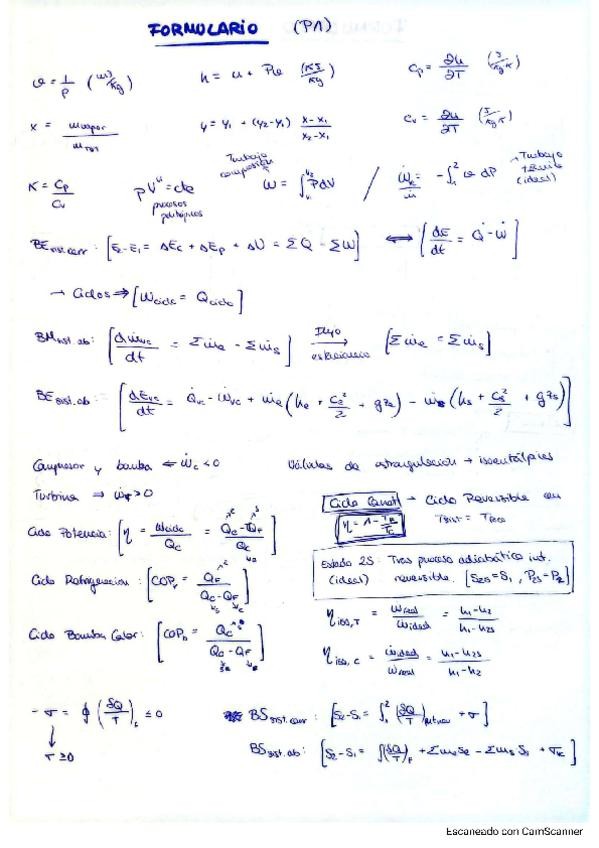 FORMULARIO (PA)
v = 1/ρ (m³/kg) h = u + Pv (KJ/Kg) Cp = ∂u/∂T (J/kg K)
x = mvapor/mTOT y = y1 + (y2-y1) x-x1/x2-x1 Cv = ∂u/∂T (J/kg K)
K = Cp/Cv pVⁿ = cte procesos politrópicos Trabajo compresión W = ∫ PdV / Ẇ/ṁ = -∫₁² v dP → Trabajo técnico (ideal)
BE sist.cerr: [E2-E1 = ΔEc + ΔEp + ΔU = ΣQ - ΣW] ⟺ [dE/dt = Q̇ - Ẇ]
→ Ciclos ⇒ [Wciclo = Qciclo]
BM sist.ab: [dmvc/dt = Σṁe - Σṁs] Flujo estacionario → [Σṁe = Σṁs]
BE sist.ab: [dEvc/dt = Q̇vc - Ẇvc + ṁe (he + Ce²/2 + gze) - ṁs (hs + Cs²/2 + gzs)]
Compresor y bomba ⇐ Ẇc < 0 Válvulas de estrangulación → isoentálpica
Turbina ⇒ ẆT > 0 Ciclo Carnot → Ciclo Reversible con
η = 1 - TF/TC
Ciclo Potencia: [η = Wciclo/QC = QC-QF/QC]
Estado 2S: Tras proceso adiabático int.
(ideal) reversible. [S2S = S1, P2S = P2]
Ciclo Refrigeracion: [COPr = QF/QC-QF]
ηiso,T = Wreal/Wideal = h1-h2/h1-h2S
Ciclo Bomba Calor: [COPb = QC/QC-QF]
ηiso,C = Ẇideal/Ẇreal = h1-h2S/h1-h2
-σ = ∮ (δQ/T) ≤ 0 BS sist.cerr: [S2-S1 = ∫₁² (δQ/T) + σ]
↓
σ ≥ 0
BS sist.ab: [S2-S1 = ∫(δQ/T)F + Σme Se - Σms Ss + σvc]
Escaneado con CamScanner